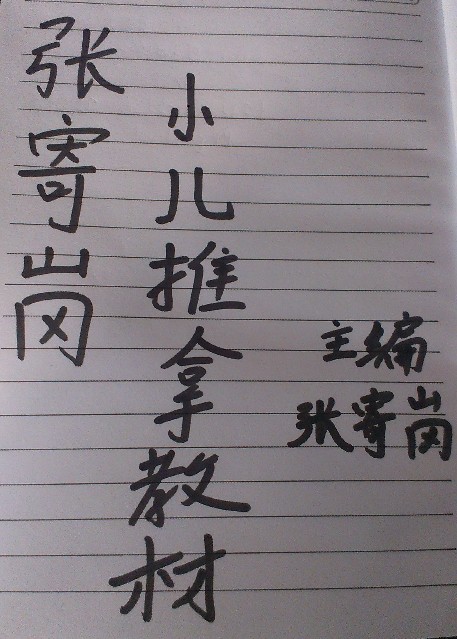 张寄岗
小儿推拿教材
主编
张寄岗